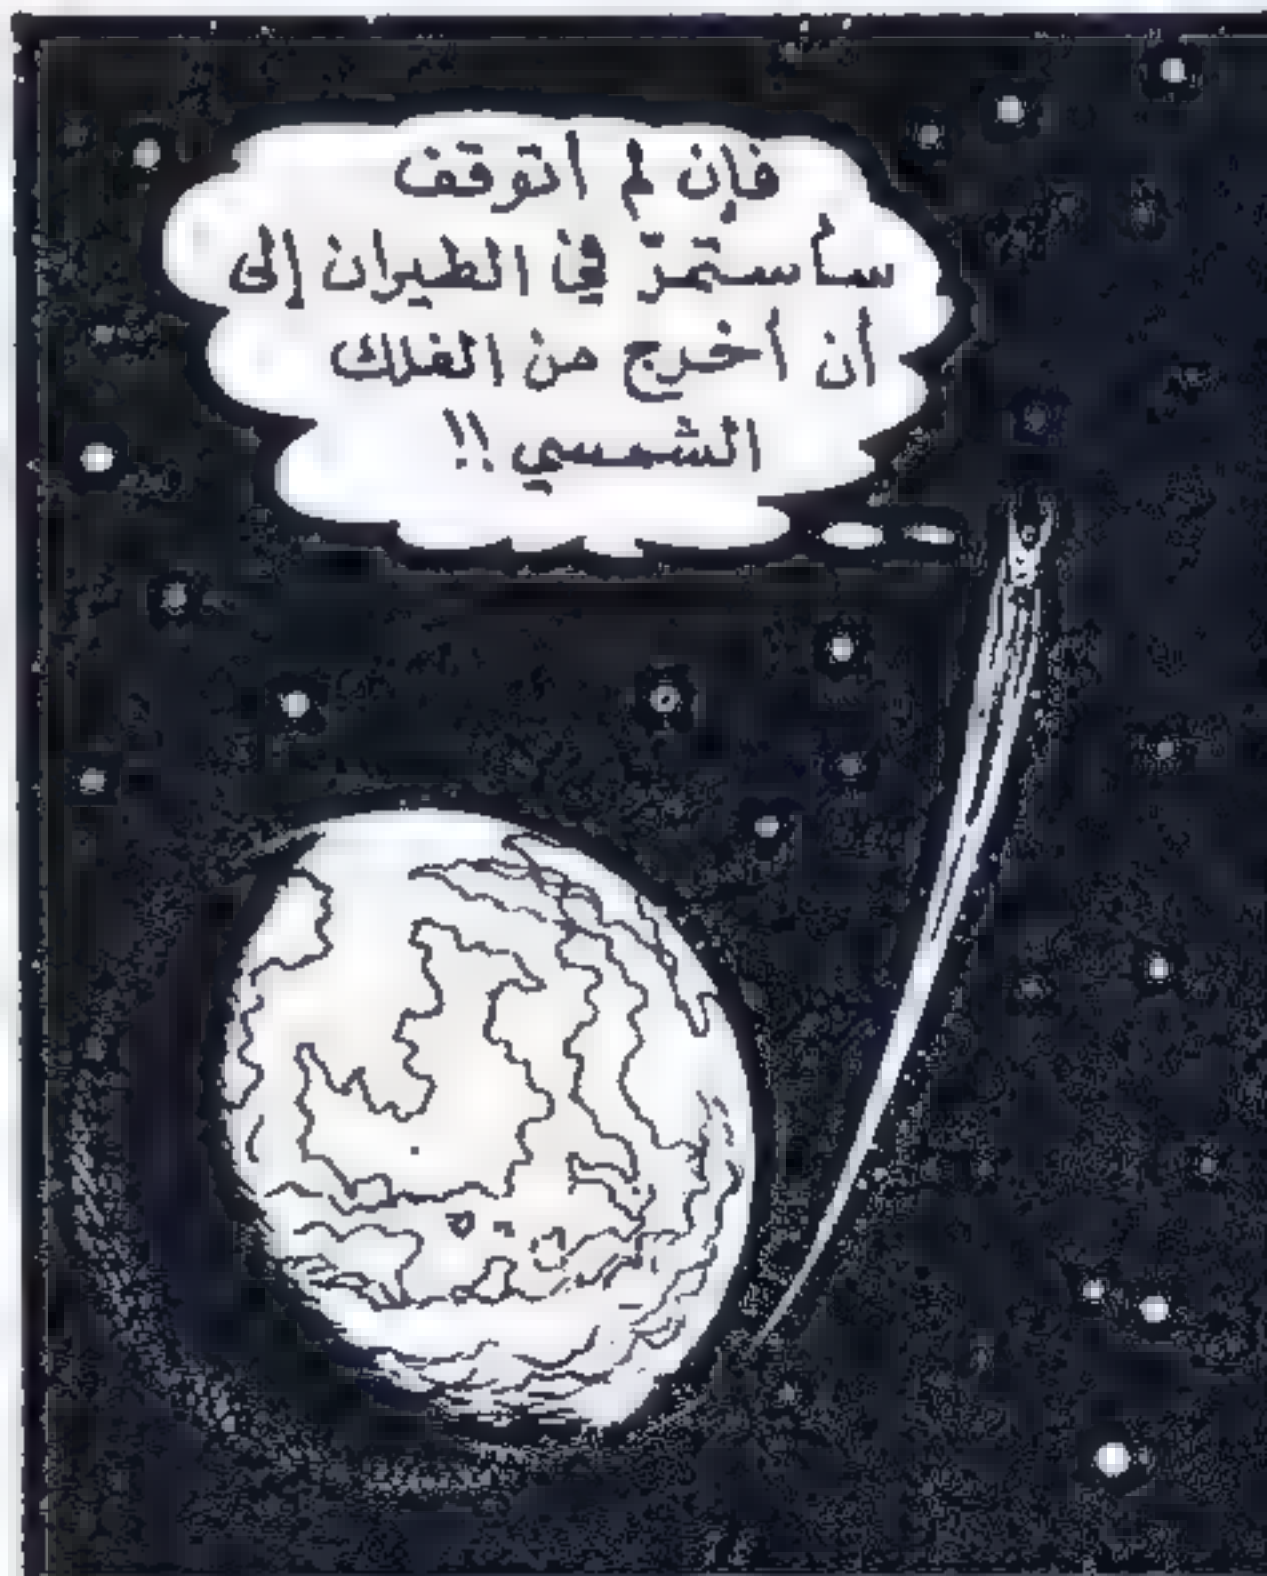 فإن لم أتوقف
سأستمرّ في الطيران إلى
أن أخرج من الفلك
الشمسي !!